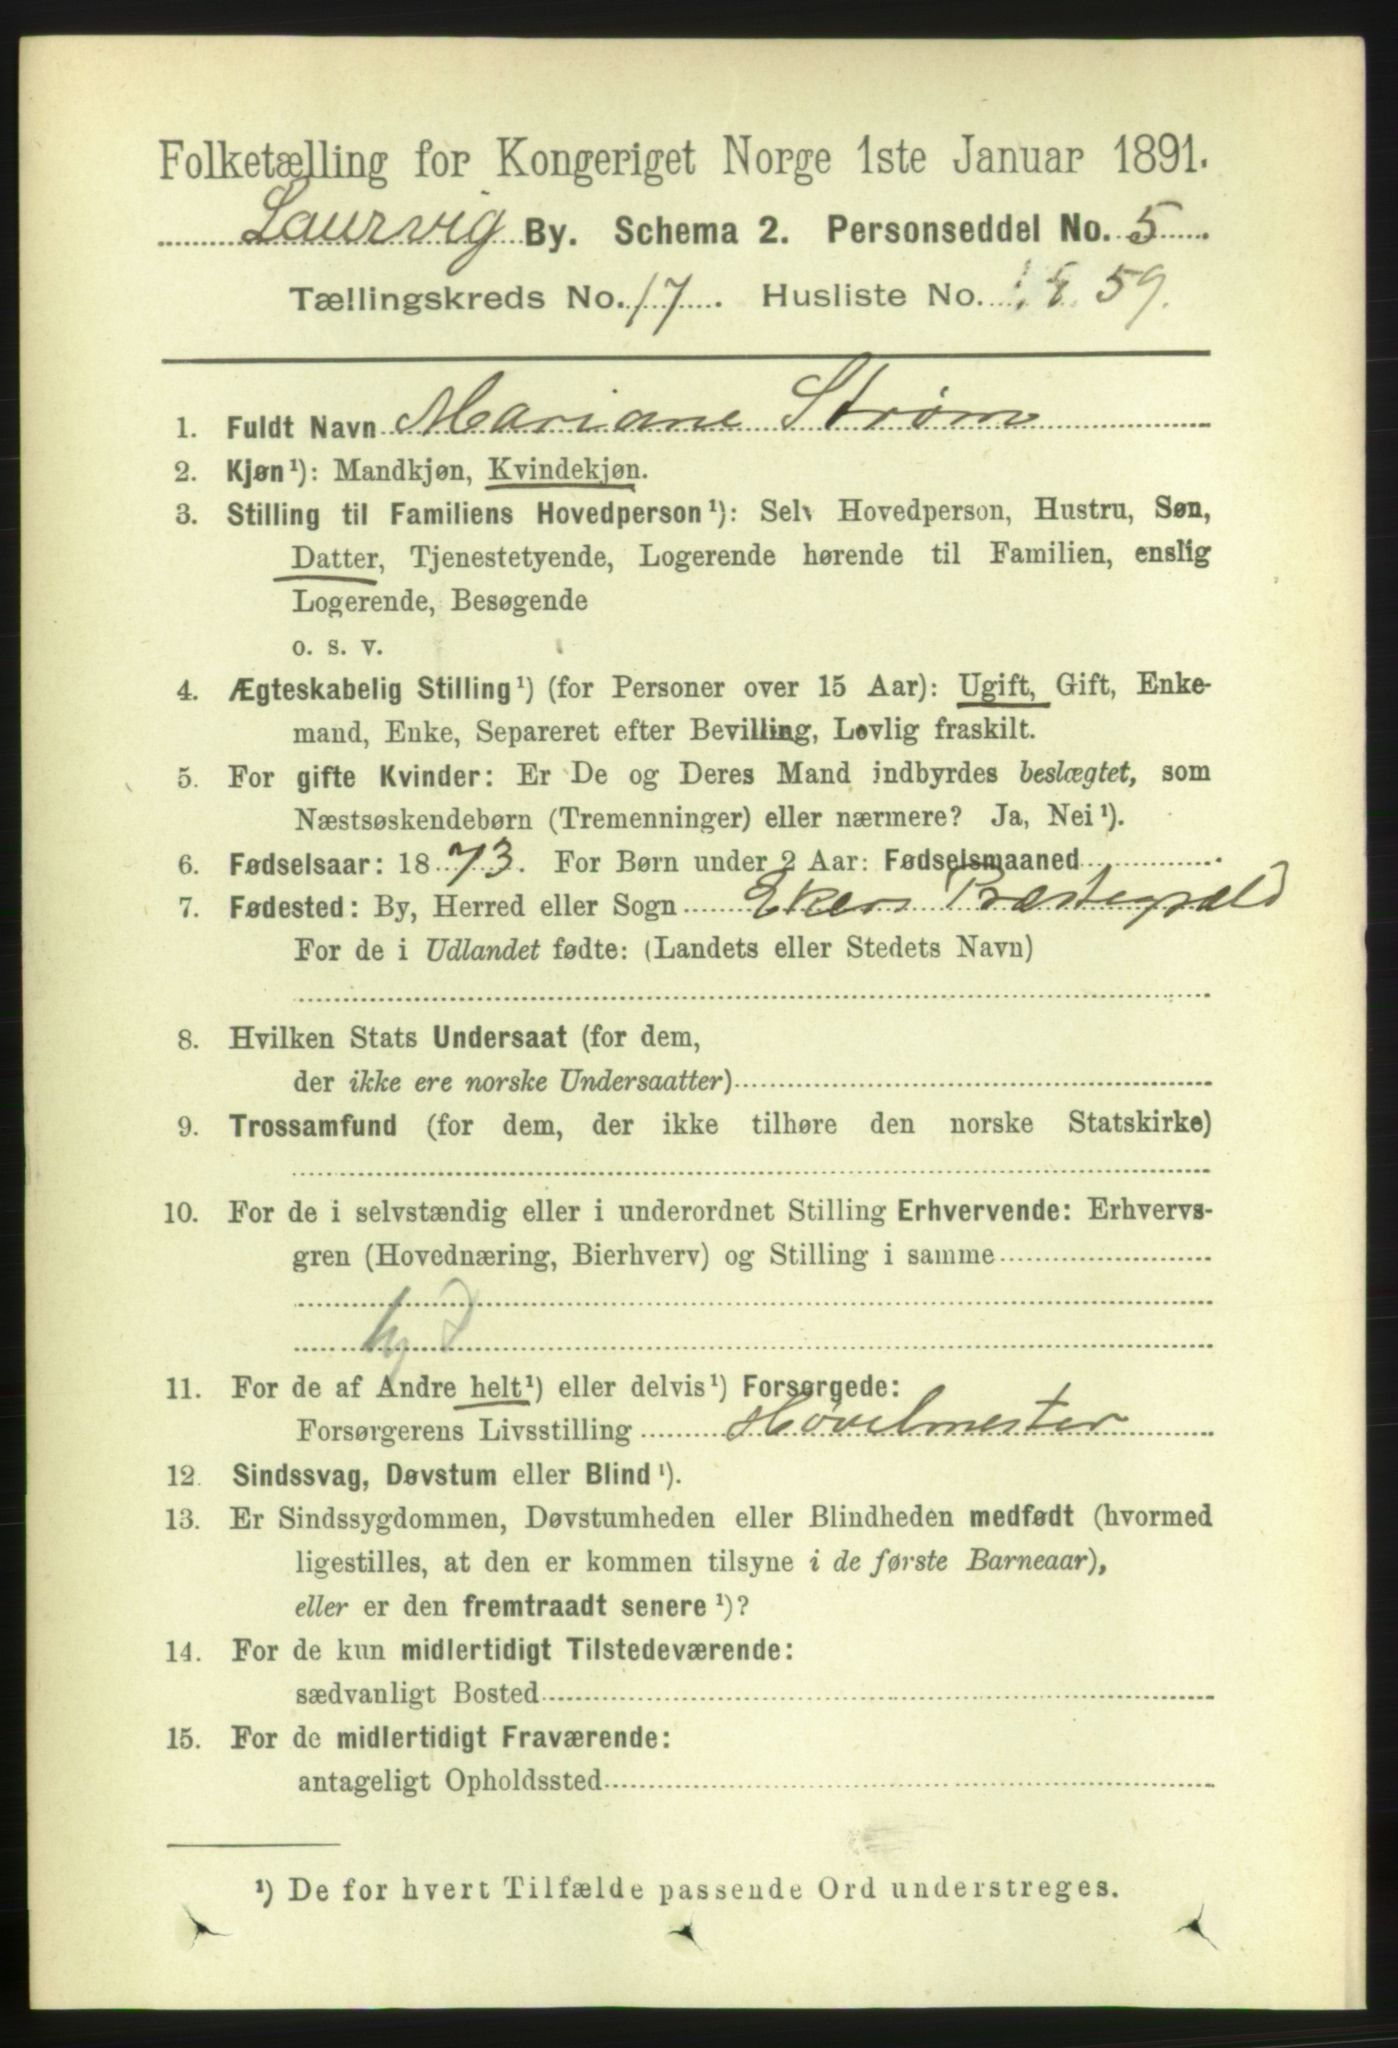 Folketælling for Kongeriget Norge 1ste Januar 1891.
Laurvig By. Schema 2. Personseddel No. 5
Tællingskreds No. 17. Husliste No. 59.
1. Fuldt Navn Mariane Strøm
2. Kjøn¹): Mandkjøn, Kvindekjøn.
3. Stilling til Familiens Hovedperson¹): Selv Hovedperson, Hustru, Søn,
Datter, Tjenestetyende, Logerende hørende til Familien, enslig
Logerende, Besøgende
o. s. v.
4. Ægteskabelig Stilling¹) (for Personer over 15 Aar): Ugift, Gift, Enke-
mand, Enke, Separeret efter Bevilling, Lovlig fraskilt.
5. For gifte Kvinder: Er De og Deres Mand indbyrdes beslægtet, som
Næstsøskendebørn (Tremenninger) eller nærmere? Ja, Nei¹).
6. Fødselsaar: 1873. For Børn under 2 Aar: Fødselsmaaned
7. Fødested: By, Herred eller Sogn Ekers Præstegjæld
For de i Udlandet fødte: (Landets eller Stedets Navn)
8. Hvilken Stats Undersaat (for dem,
der ikke ere norske Undersaatter)
9. Trossamfund (for dem, der ikke tilhøre den norske Statskirke)
10. For de i selvstændig eller i underordnet Stilling Erhvervende: Erhvervs-
gren (Hovednæring, Bierhverv) og Stilling i samme
11. For de af Andre helt¹) eller delvis¹) Forsørgede:
Forsørgerens Livsstilling Høvelmester
12. Sindssvag, Døvstum eller Blind¹).
13. Er Sindssygdommen, Døvstumheden eller Blindheden medfødt (hvormed
ligestilles, at den er kommen tilsyne i de første Barneaar),
eller er den fremtraadt senere¹)?
14. For de kun midlertidigt Tilstedeværende:
sædvanligt Bosted
15. For de midlertidigt Fraværende:
antageligt Opholdssted
¹) De for hvert Tilfælde passende Ord understreges.